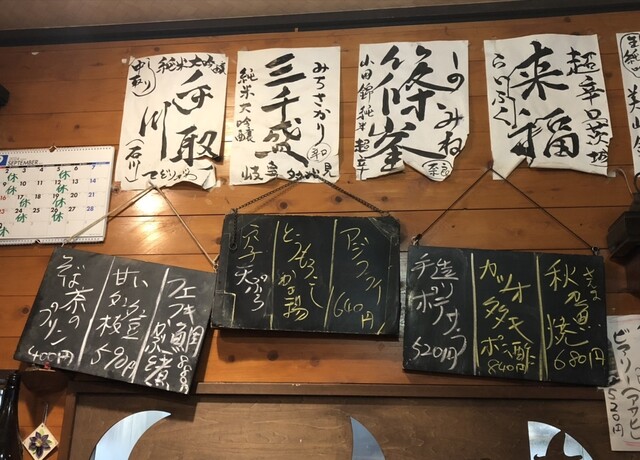 SEPTEMBER
休
しぼり
中取り
純米大吟醸
手取川
石川
てどりがわ
みちさかり
三千盛
純米大吟醸
岐阜 多治見
しのみね
篠峯
山田錦純米 超辛
超辛口 茨城
来福
らいふく
フエフキ鯛
昆布〆
880円
甘い
枝豆
590円
そば茶の
プリン
400円
アジフライ
640円
とうもろこし
かき揚
穴子天ぷら
さんま
秋刀魚焼
680円
カツオタタキ
ポン酢
840円
手造り
ポテサラ
520円
520円